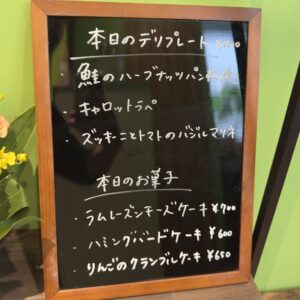 本日のデリプレート
・鮭のハーブナッツパン粉
・キャロットラペ
・ズッキーニとトマトのバジルマリネ
本日のお菓子
・ラムレーズンチーズケーキ ¥700
・ハミングバードケーキ ¥600
・りんごのクランブルケーキ ¥650